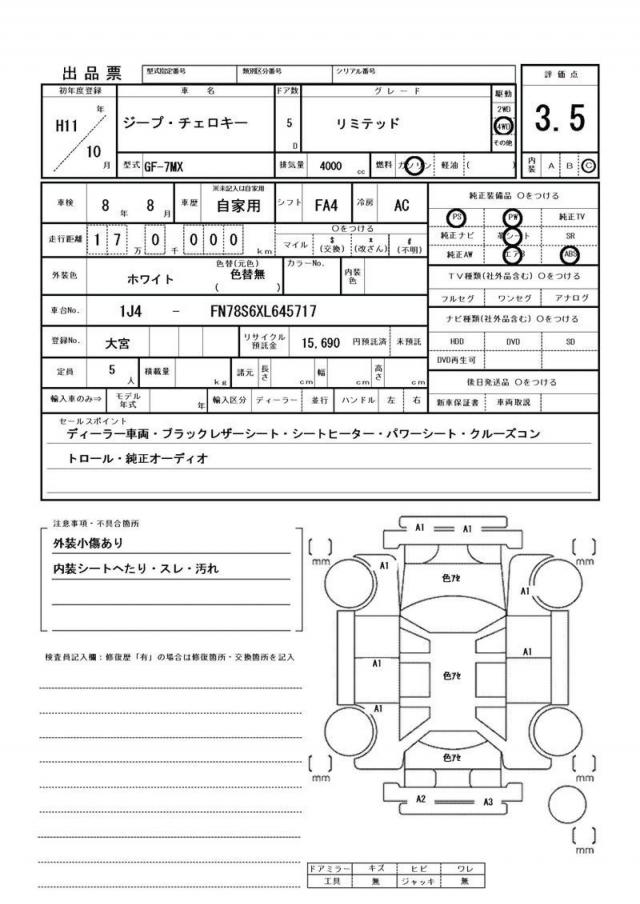 出品票 型式指定番号 類別区分番号 シリアル番号 評価点
初年度登録 車名 ドア数 グレード 駆動
H11 年 10 月 ジープ・チェロキー 5 D リミテッド 2WD 4WD その他 3.5
型式 GF-7MX 排気量 4000 cc 燃料 ガソリン ・ 軽油 ・ ( ) 内装 A B C
※未記入は自家用 純正装備品 ○をつける
車検 8 年 8 月 車歴 自家用 シフト FA4 冷房 AC
PS PW 純正TV
○をつける
走行距離 1 7 万 0 千 0 0 0 km マイル $ (交換) x (改ざん) # (不明)
純正ナビ 革シート SR
純正AW エアB ABS
外装色 ホワイト 色替(元色) 色替無 ( ) カラーNo. 内装色
TV種類(社外品含む) ○をつける
フルセグ ワンセグ アナログ
車台No. 1J4 - FN78S6XL645717
ナビ種類(社外品含む) ○をつける
登録No. 大宮 リサイクル預託金 15,690 円預託済 未預託
HDD DVD SD
DVD再生可
定員 5 人 積載量 kg 諸元 長さ cm 幅 cm 高さ cm
後日発送品 ○をつける
輸入車のみ⇒ モデル年式 年 輸入区分 ディーラー ・ 並行 ハンドル 左 ・ 右
新車保証書 車両取説
セールスポイント
ディーラー車両・ブラックレザーシート・シートヒーター・パワーシート・クルーズコン
トロール・純正オーディオ
注意事項・不具合箇所
外装小傷あり
内装シートへたり・スレ・汚れ
検査員記入欄：修復歴「有」の場合は修復箇所・交換箇所を記入
A1 A1
mm mm
A1 色ｱｾ A1
A1 色ｱｾ A1
A1
色ｱｾ
mm mm
A2 A3
mm
ドアミラー キズ ヒビ ワレ
工具 無 ジャッキ 無